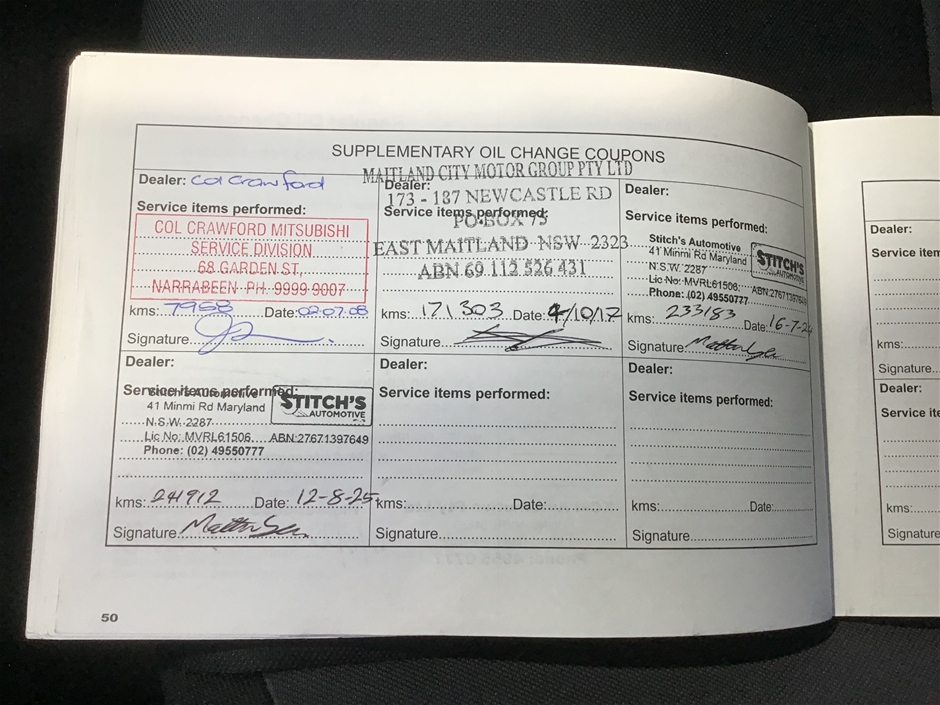 SUPPLEMENTARY OIL CHANGE COUPONS
Dealer: Col Crawford
Service items performed:
COL CRAWFORD MITSUBISHI
SERVICE DIVISION
68 GARDEN ST,
NARRABEEN PH. 9999 9007
kms: 7958 Date: 02.07.08
Signature
MAITLAND CITY MOTOR GROUP PTY LTD
Dealer:
173 - 187 NEWCASTLE RD
Service items performed:
PO BOX 75
EAST MAITLAND NSW 2323
ABN 69 112 526 431
kms: 171303 Date: 4/10/17
Signature
Dealer:
Service items performed:
Stitch's Automotive
41 Minmi Rd Maryland
N.S.W. 2287
Lic No: MVRL61506 ABN:27671397649
Phone: (02) 49550777
STITCH'S
AUTOMOTIVE
kms: 233183 Date: 16-7-24
Signature
Dealer:
Service items performed:
Stitch's Automotive
41 Minmi Rd Maryland
N.S.W. 2287
Lic No: MVRL61506 ABN:27671397649
Phone: (02) 49550777
STITCH'S
AUTOMOTIVE
kms: 241912 Date: 12-8-25
Signature
Dealer:
Service items performed:
kms: Date:
Signature
Dealer:
Service items performed:
kms: Date:
Signature
50
Dealer:
Service
kms:
Signature
Dealer:
Service
kms:
Signature